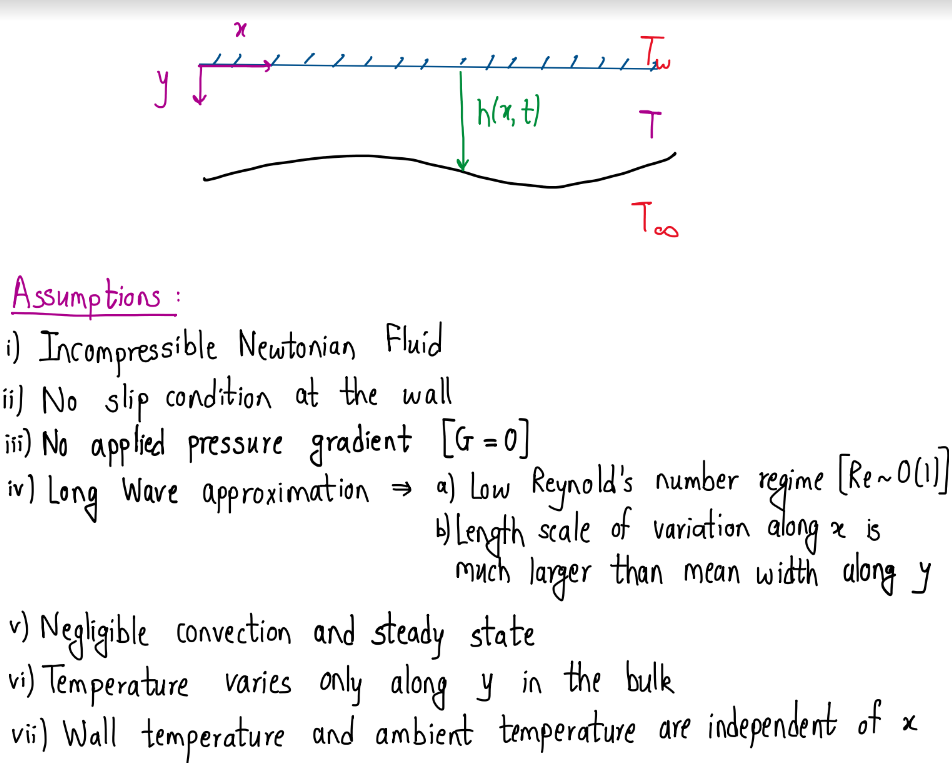 x
T_w
y
h(x,t)
T
T_∞
Assumptions :
i) Incompressible Newtonian Fluid
ii) No slip condition at the wall
iii) No applied pressure gradient [G = 0]
iv) Long Wave approximation ⇒ a) Low Reynold's number regime [Re ~ O(1)]
b) Length scale of variation along x is
much larger than mean width along y
v) Negligible convection and steady state
vi) Temperature varies only along y in the bulk
vii) Wall temperature and ambient temperature are independent of x